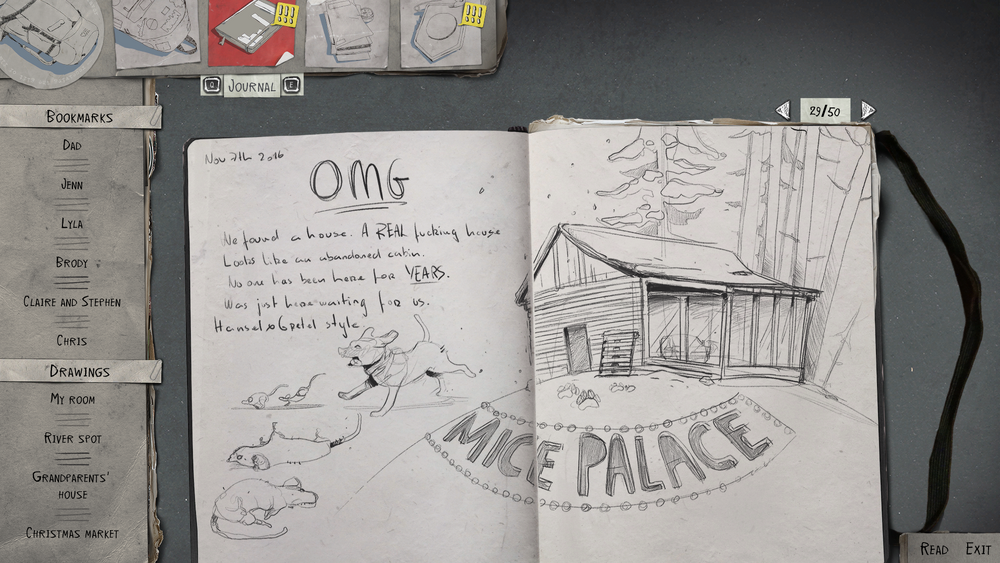 !!! !!!
Q JOURNAL E
BOOKMARKS
DAD
JENN
LYLA
BRODY
CLAIRE AND STEPHEN
CHRIS
DRAWINGS
MY ROOM
RIVER SPOT
GRANDPARENTS'
HOUSE
CHRISTMAS MARKET
29/50
Nov 7th 2016
OMG
We found a house. A REAL fucking house
Looks like an abandoned cabin.
No one has been here for YEARS.
Was just here waiting for us.
Hansel & Gretel style.
MICE PALACE
READ EXIT